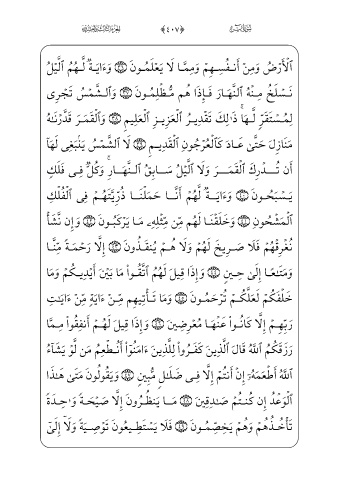 سُورَةُ يسٓ ﴿٤٠٧﴾ الجزء الثالث والعشرون
ٱلْأَرْضُ وَمِنْ أَنفُسِهِمْ وَمِمَّا لَا يَعْلَمُونَ ۝ وَءَايَةٌ لَّهُمُ ٱلَّيْلُ
نَسْلَخُ مِنْهُ ٱلنَّهَارَ فَإِذَا هُم مُّظْلِمُونَ ۝ وَٱلشَّمْسُ تَجْرِى
لِمُسْتَقَرٍّ لَّهَا ۚ ذَٰلِكَ تَقْدِيرُ ٱلْعَزِيزِ ٱلْعَلِيمِ ۝ وَٱلْقَمَرَ قَدَّرْنَٰهُ
مَنَازِلَ حَتَّىٰ عَادَ كَٱلْعُرْجُونِ ٱلْقَدِيمِ ۝ لَا ٱلشَّمْسُ يَنۢبَغِى لَهَآ
أَن تُدْرِكَ ٱلْقَمَرَ وَلَا ٱلَّيْلُ سَابِقُ ٱلنَّهَارِ ۚ وَكُلٌّ فِى فَلَكٍ
يَسْبَحُونَ ۝ وَءَايَةٌ لَّهُمْ أَنَّا حَمَلْنَا ذُرِّيَّتَهُمْ فِى ٱلْفُلْكِ
ٱلْمَشْحُونِ ۝ وَخَلَقْنَا لَهُم مِّن مِّثْلِهِۦ مَا يَرْكَبُونَ ۝ وَإِن نَّشَأْ
نُغْرِقْهُمْ فَلَا صَرِيخَ لَهُمْ وَلَا هُمْ يُنقَذُونَ ۝ إِلَّا رَحْمَةً مِّنَّا
وَمَتَٰعًا إِلَىٰ حِينٍ ۝ وَإِذَا قِيلَ لَهُمُ ٱتَّقُوا۟ مَا بَيْنَ أَيْدِيكُمْ وَمَا
خَلْفَكُمْ لَعَلَّكُمْ تُرْحَمُونَ ۝ وَمَا تَأْتِيهِم مِّنْ ءَايَةٍ مِّنْ ءَايَٰتِ
رَبِّهِمْ إِلَّا كَانُوا۟ عَنْهَا مُعْرِضِينَ ۝ وَإِذَا قِيلَ لَهُمْ أَنفِقُوا۟ مِمَّا
رَزَقَكُمُ ٱللَّهُ قَالَ ٱلَّذِينَ كَفَرُوا۟ لِلَّذِينَ ءَامَنُوٓا۟ أَنُطْعِمُ مَن لَّوْ يَشَآءُ
ٱللَّهُ أَطْعَمَهُۥٓ إِنْ أَنتُمْ إِلَّا فِى ضَلَٰلٍ مُّبِينٍ ۝ وَيَقُولُونَ مَتَىٰ هَٰذَا
ٱلْوَعْدُ إِن كُنتُمْ صَٰدِقِينَ ۝ مَا يَنظُرُونَ إِلَّا صَيْحَةً وَٰحِدَةً
تَأْخُذُهُمْ وَهُمْ يَخِصِّمُونَ ۝ فَلَا يَسْتَطِيعُونَ تَوْصِيَةً وَلَآ إِلَىٰٓ